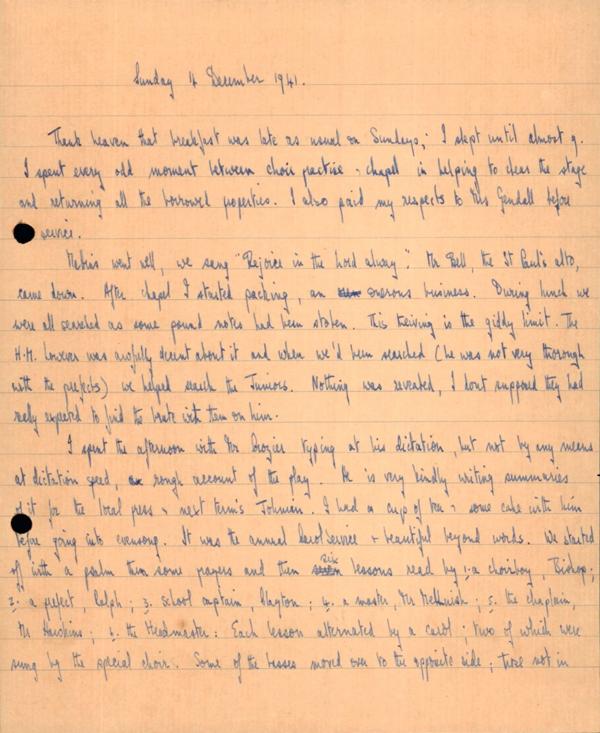 Sunday 14 December 1941.
Thank heaven that breakfast was late as usual on Sundays; I slept until almost 9.
I spent every odd moment between choir practise & chapel in helping to clear the stage
and returning all the borrowed properties. I also paid my respects to Mrs Gendall before
service.
Matins went well, we sang "Rejoice in the Lord alway". Mr Bell, the St Paul's alto,
came down. After chapel I started packing, an onerous business. During lunch we
were all searched as some pound notes had been stolen. This thieving is the giddy limit. The
H.M. however was awfully decent about it and when we'd been searched (he was not very thorough
with the prefects) we helped search the Juniors. Nothing was revealed, I dont supposed they had
really expected to find the brute with them on him.
I spent the afternoon with Mr Crozier typing at his dictation, but not by any means
at dictation speed, a rough account of the play. He is very kindly writing summaries
of it for the local press & next term's Johnian. I had a cup of tea & some cake with him
before going into evensong. It was the annual Carol Service & beautiful beyond words. We started
off with a psalm then some prayers and then six lessons read by 1. a choirboy, Bishop;
2. a prefect, Ralph; 3. School captain, Clayton; 4. a master, Mr Mellhuish; 5. the chaplain,
Mr Hoskins; 6. the Headmaster: Each lesson alternated by a carol; two of which were
sung by the special choir. Some of the basses moved over to the opposite side; those not in